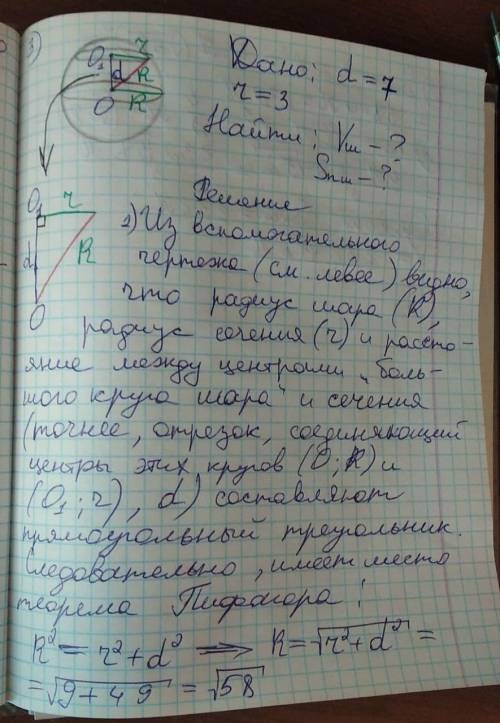 3)
r
O₁
d
R
O
R
Дано: d = 7
r = 3
Найти: Vш - ?
Sпш - ?
Решение
1) Из вспомогательного
чертежа (см. левее) видно,
что радиус шара (R),
радиус сечения (r) и рассто-
яние между центрами „боль-
шого круга шара" и сечения
(точнее, отрезок, соединяющий
центры этих кругов (O; R) и
(O₁; r), d) составляют
прямоугольный треугольник.
Следовательно, имеет место
теорема Пифагора:
R² = r² + d² ⟹ R = √(r² + d²) =
= √(9 + 49) = √58
O₁
r
d
R
O